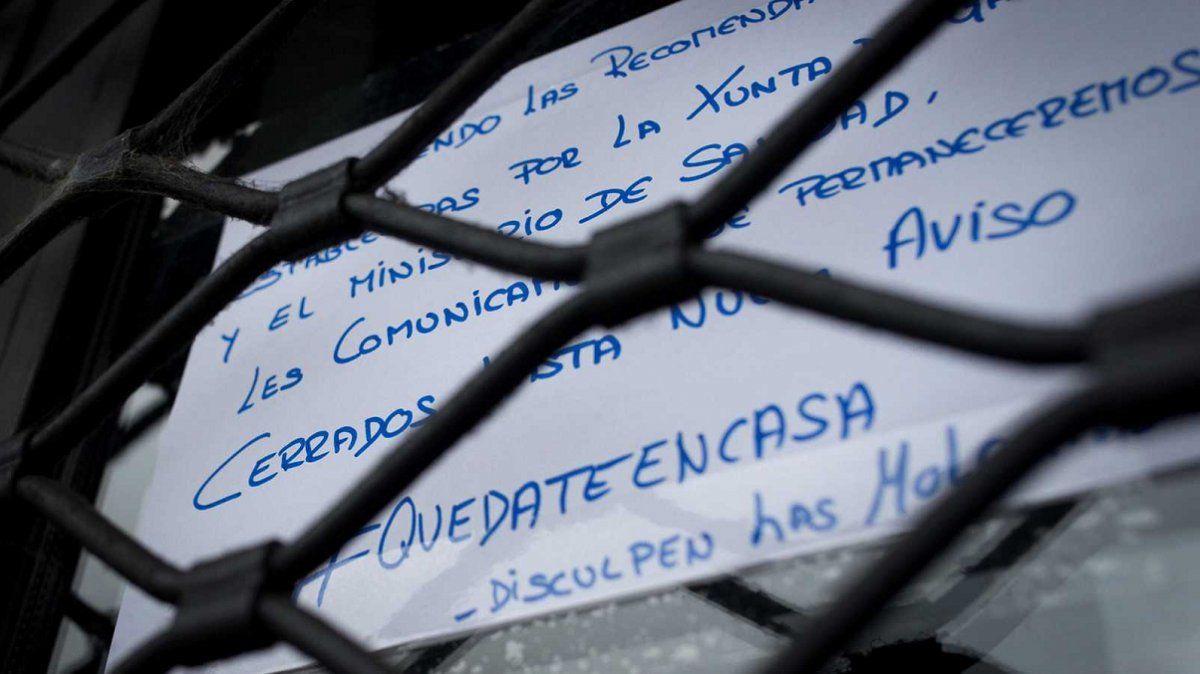 ENDO LAS RECOMENDA
ESTABLE AS POR LA XUNTA
Y EL MINISTERIO DE SANIDAD,
LES COMUNICAMOS QUE PERMANECEREMOS
CERRADOS HASTA NUEVO AVISO
#QUEDATEENCASA
- DISCULPEN LAS MOLE